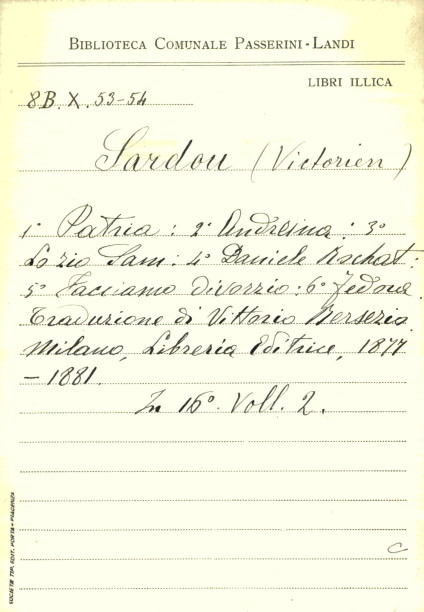 BIBLIOTECA COMUNALE PASSERINI-LANDI
LIBRI ILLICA
8B.X.53-54
Sardou (Victorien)
1° Patria: 2° Andreina: 3°
Lo zio Sam: 4° Daniele Rochat:
5° Facciamo divorzio: 6° Fedora
Traduzione di Vittorio Bersezio.
Milano, Libreria Editrice, 1877
-1881.
In 16°. Voll. 2.
C
SOCIETÀ TIP. EDIT. PORTA - PIACENZA